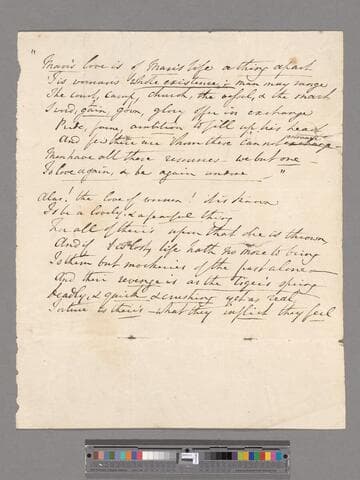 "
Man's love is of Man's life a thing apart
Tis womans whole existence; man may range
The court, camp, church, the vessel, & the mart
Sword, gain, gown, glory offer in exchange
Pride, fame, ambition to fill up his heart
And few there are whom these cannot estrange
Men have all these resources - we but one -
To love again, & be again undone - "
Alas! the love of women! tis known
To be a lovely & a fearful thing
For all of theirs upon that die is thrown
And if tis lost, life hath no more to bring
To them but mockeries of the past alone -
And their revenge is as the tiger's spring
Deadly, & quick & crushing yet as real
Torture is theirs - what they inflict they feel